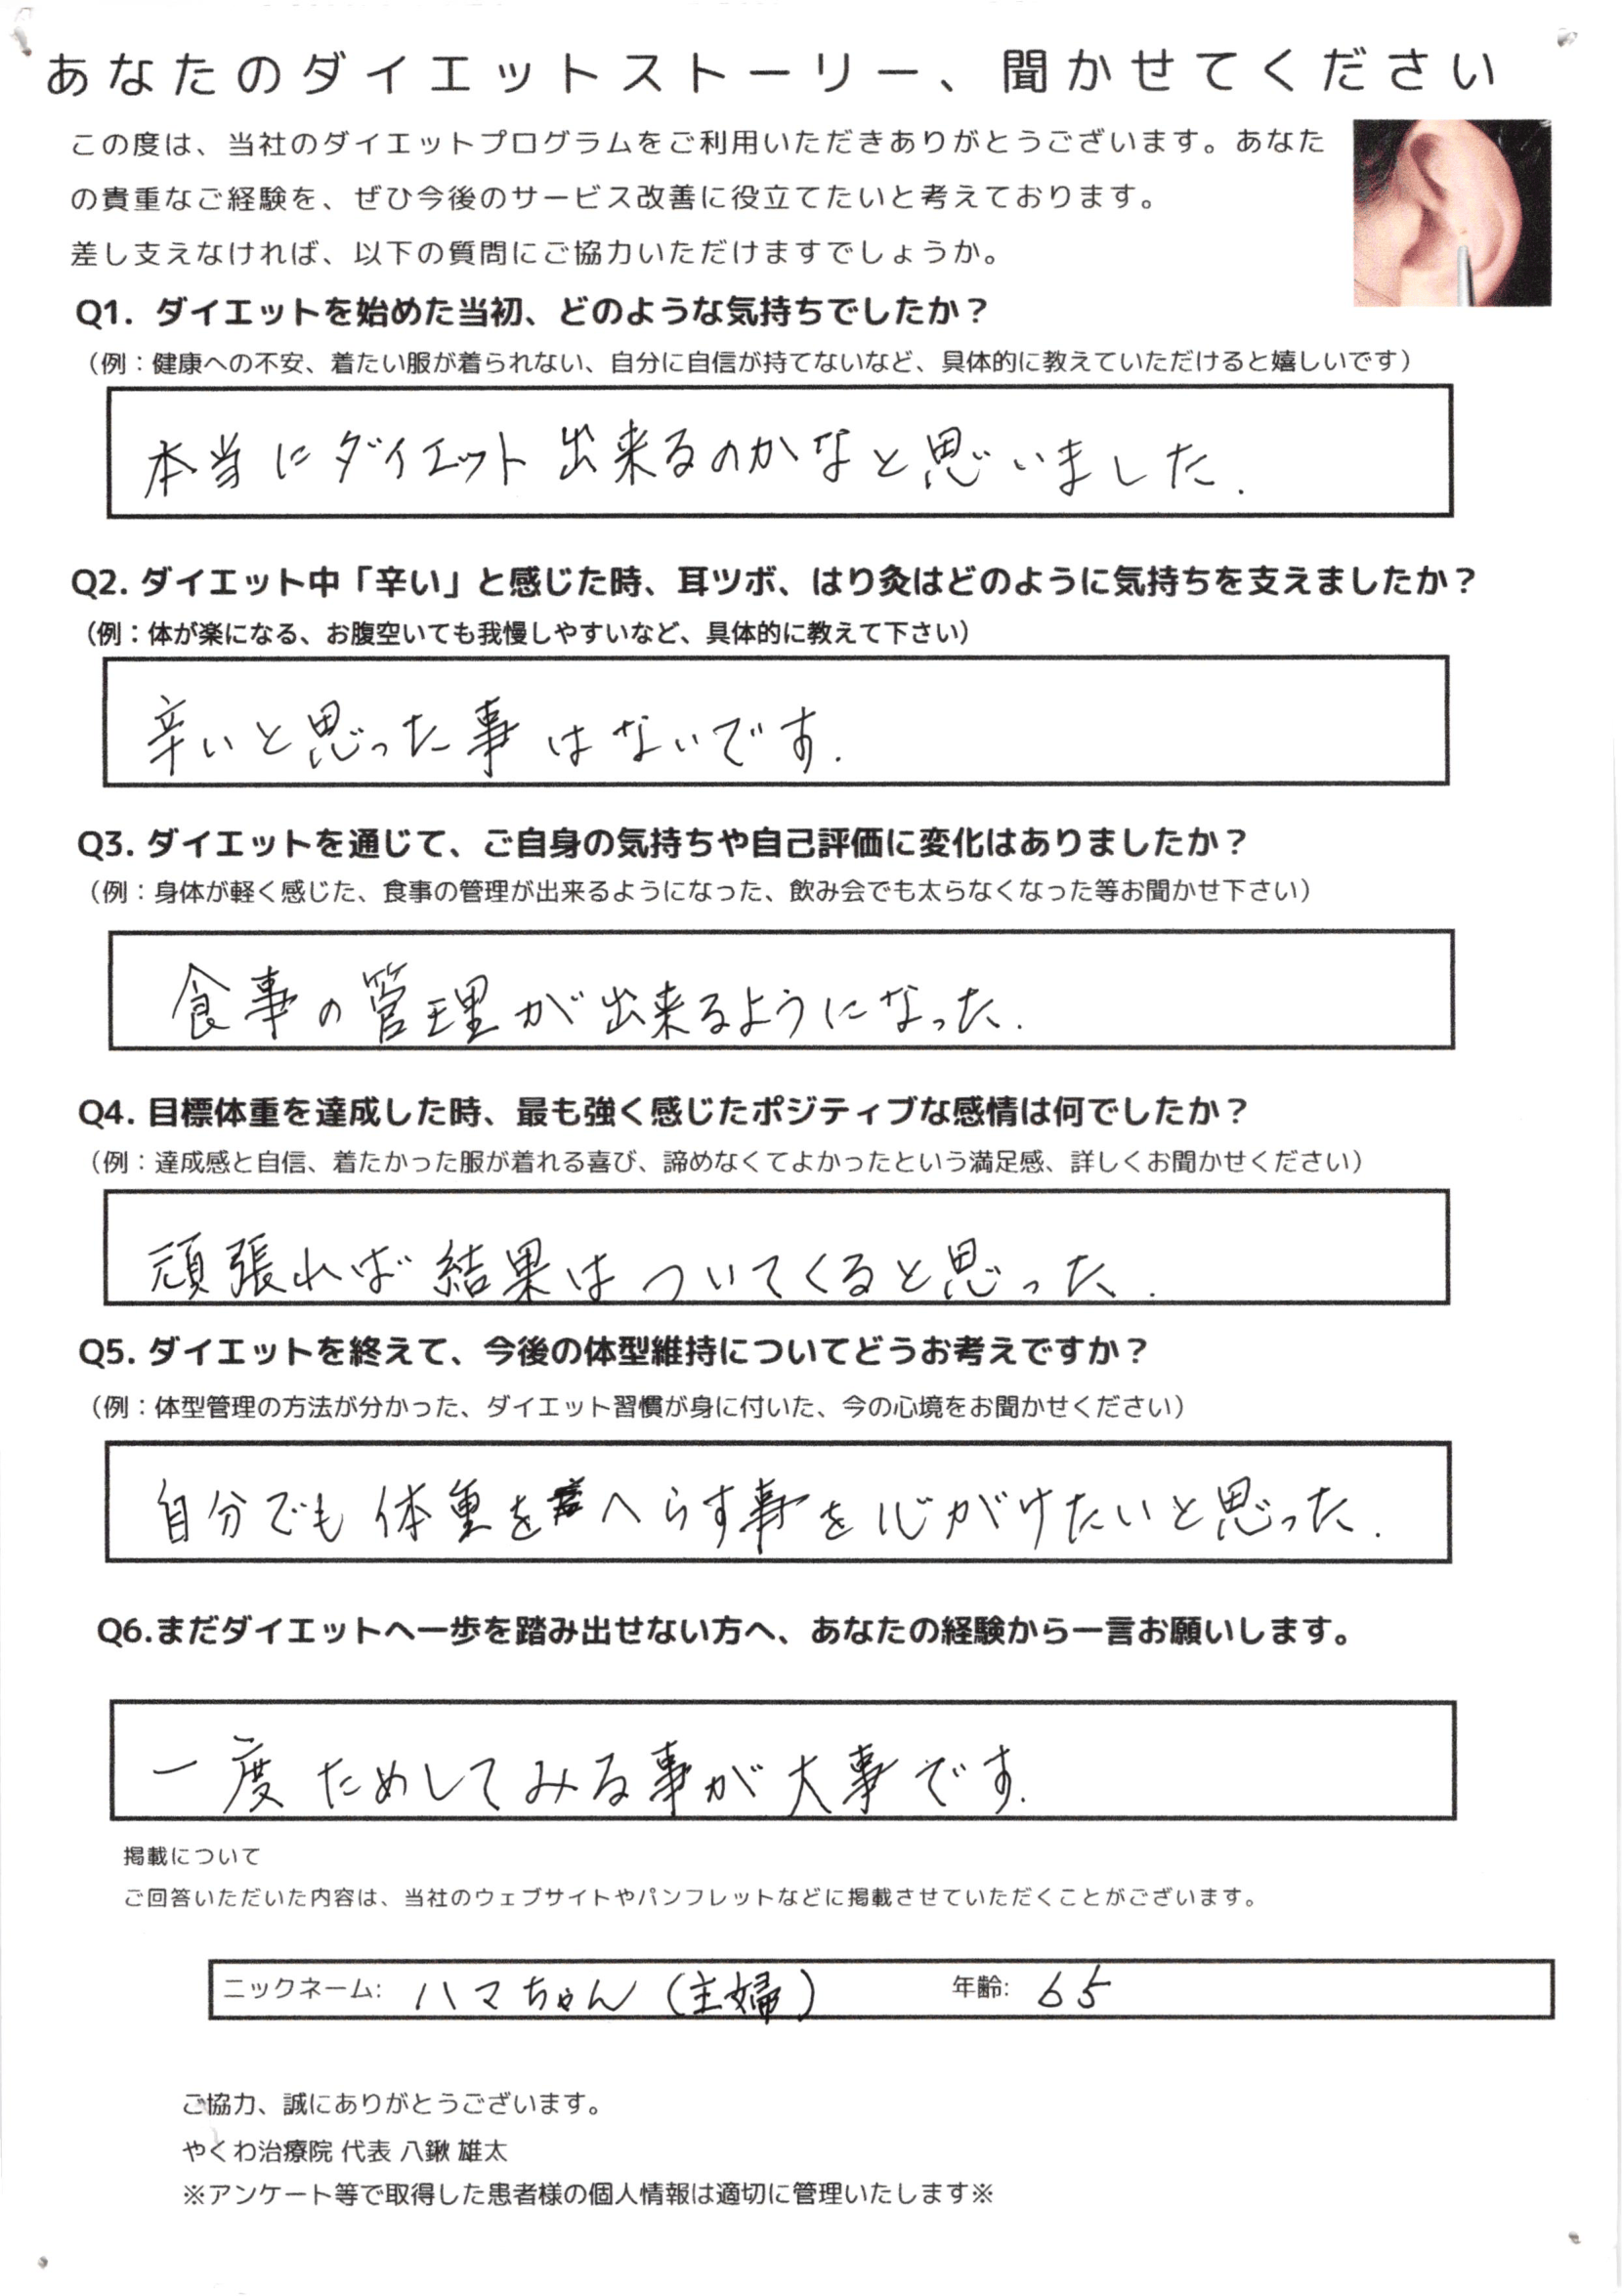 あなたのダイエットストーリー、聞かせてください
この度は、当社のダイエットプログラムをご利用いただきありがとうございます。あなた
の貴重なご経験を、ぜひ今後のサービス改善に役立てたいと考えております。
差し支えなければ、以下の質問にご協力いただけますでしょうか。
Q1. ダイエットを始めた当初、どのような気持ちでしたか？
（例：健康への不安、着たい服が着られない、自分に自信が持てないなど、具体的に教えていただけると嬉しいです）
本当にダイエット出来るのかなと思いました.
Q2. ダイエット中「辛い」と感じた時、耳ツボ、はり灸はどのように気持ちを支えましたか？
（例：体が楽になる、お腹空いても我慢しやすいなど、具体的に教えて下さい）
辛いと思った事はないです.
Q3. ダイエットを通じて、ご自身の気持ちや自己評価に変化はありましたか？
（例：身体が軽く感じた、食事の管理が出来るようになった、飲み会でも太らなくなった等お聞かせ下さい）
食事の管理が出来るようになった.
Q4. 目標体重を達成した時、最も強く感じたポジティブな感情は何でしたか？
（例：達成感と自信、着たかった服が着れる喜び、諦めなくてよかったという満足感、詳しくお聞かせください）
頑張れば結果はついてくると思った.
Q5. ダイエットを終えて、今後の体型維持についてどうお考えですか？
（例：体型管理の方法が分かった、ダイエット習慣が身に付いた、今の心境をお聞かせください）
自分でも体重をへらす事を心がけたいと思った.
Q6.まだダイエットへ一歩を踏み出せない方へ、あなたの経験から一言お願いします。
一度ためしてみる事が大事です.
掲載について
ご回答いただいた内容は、当社のウェブサイトやパンフレットなどに掲載させていただくことがございます。
ニックネーム: ハマちゃん（主婦） 年齢: 65
ご協力、誠にありがとうございます。
やくわ治療院 代表 八鍬 雄太
※アンケート等で取得した患者様の個人情報は適切に管理いたします※